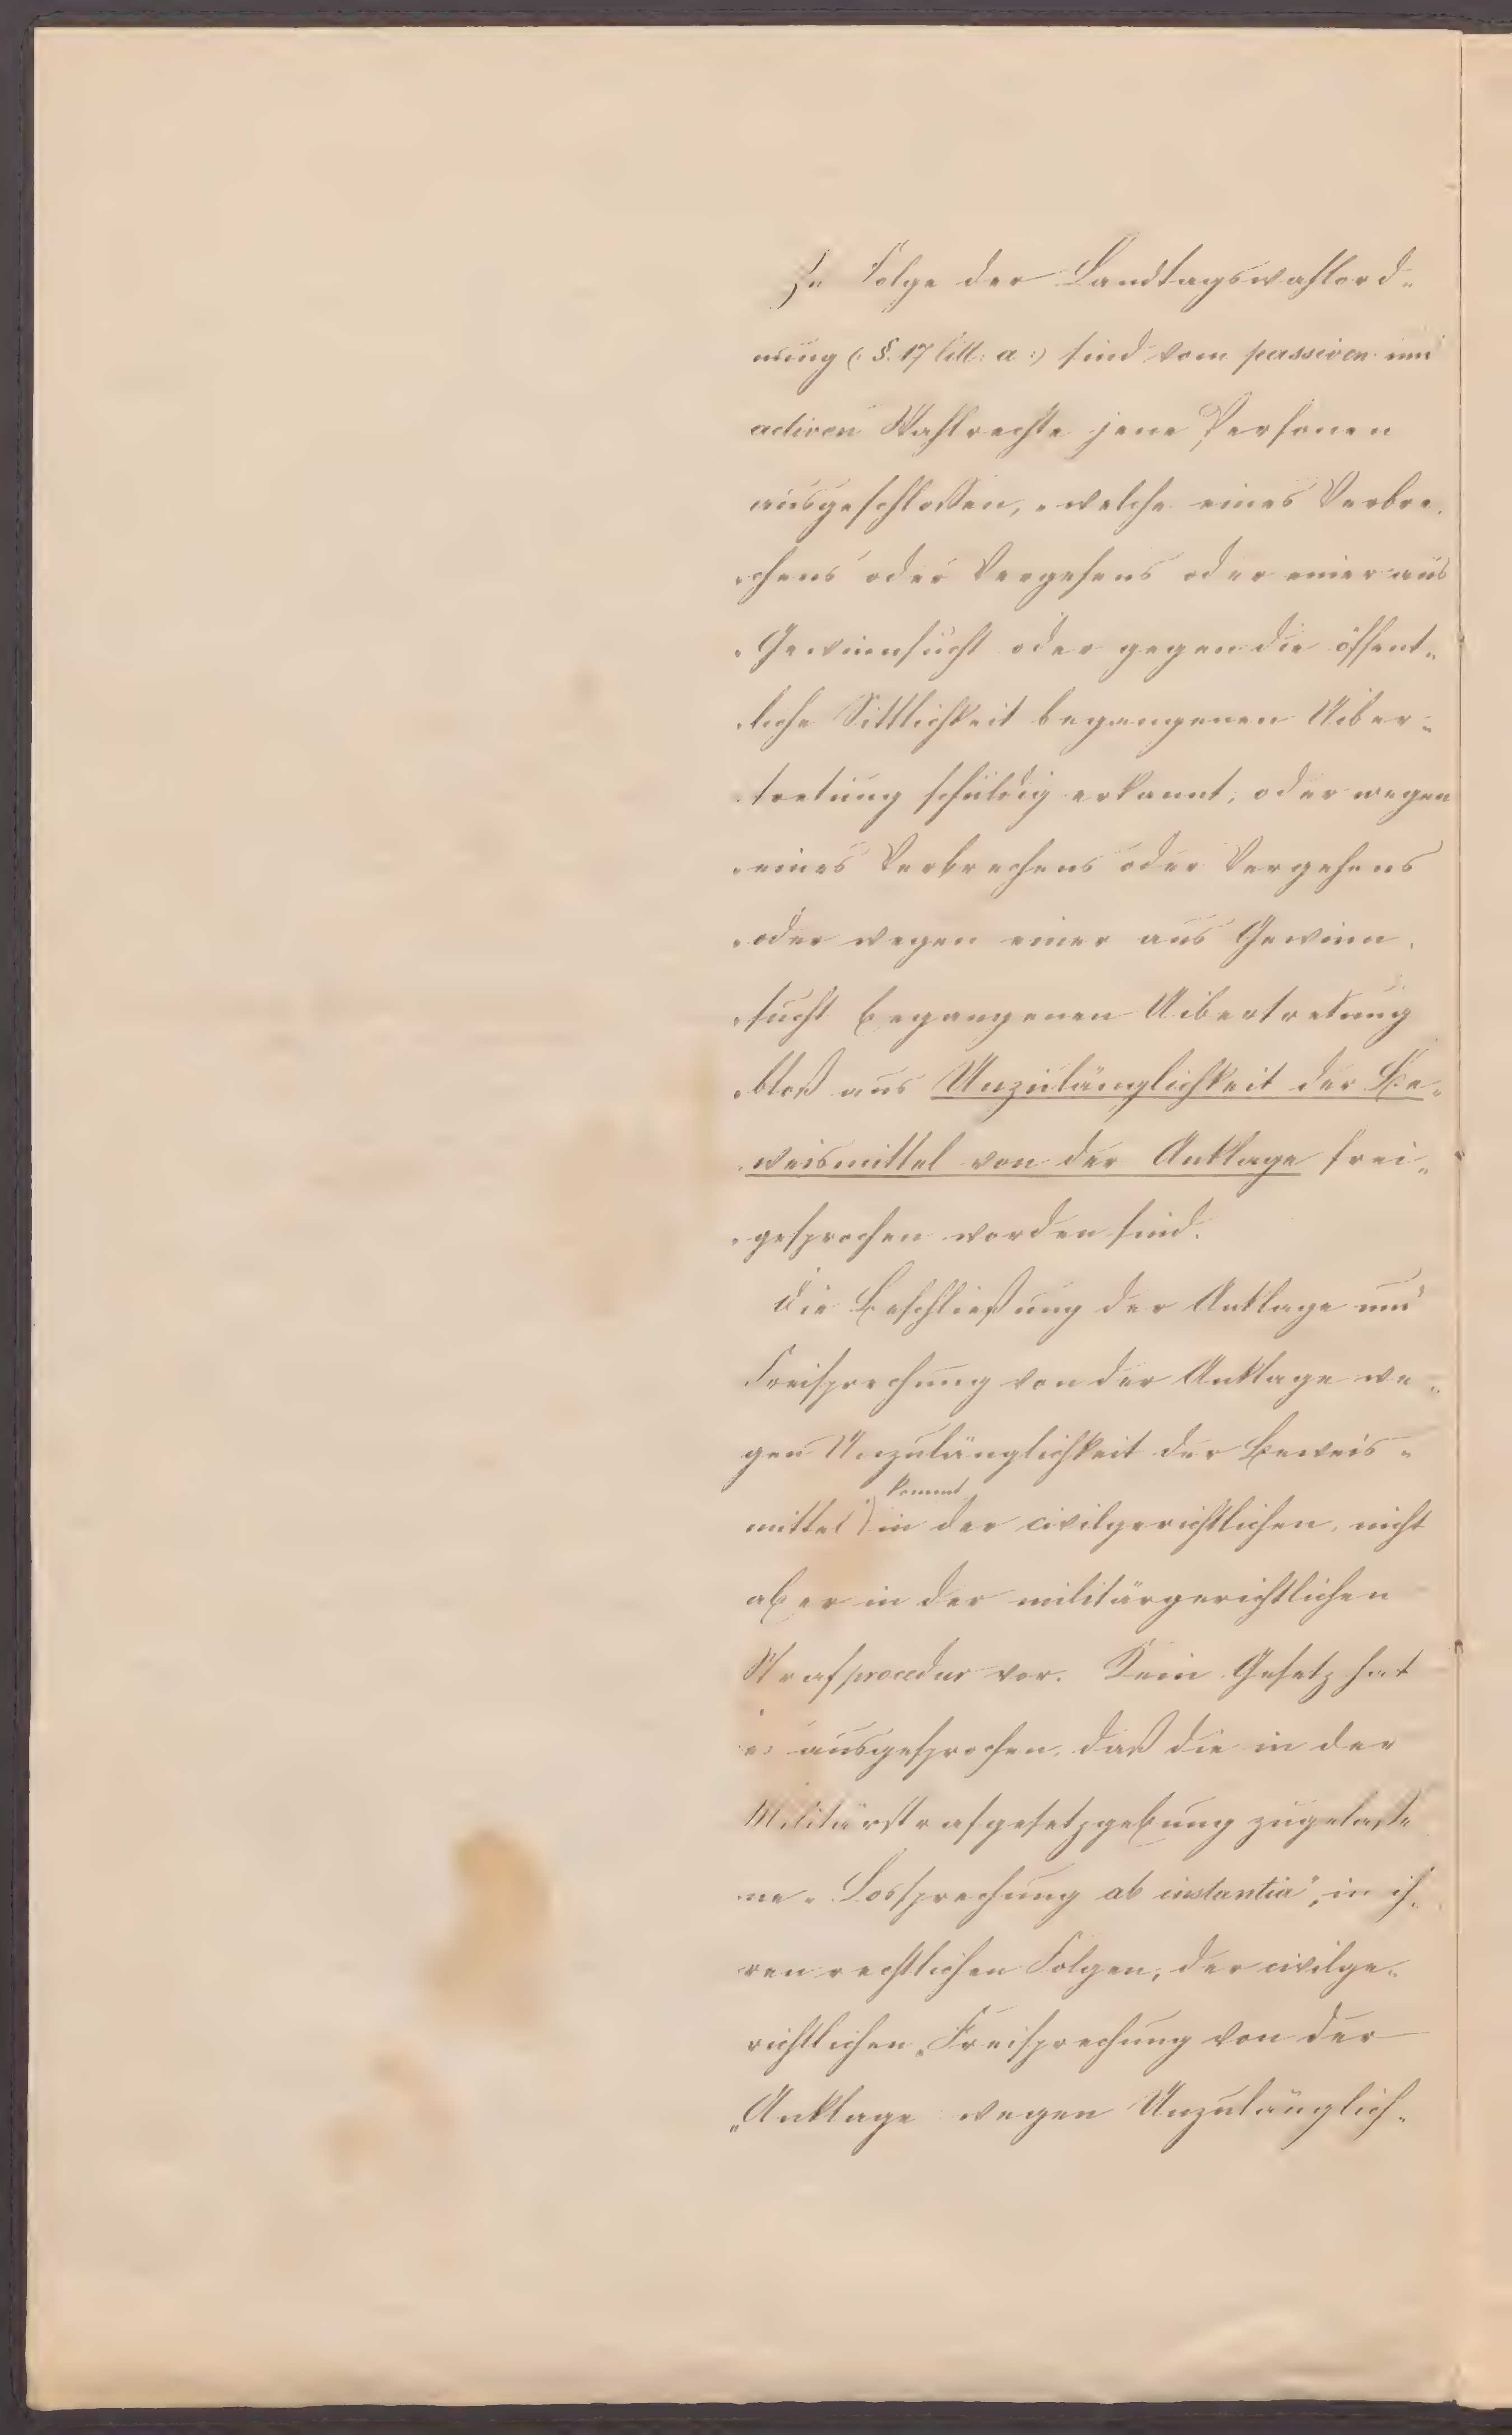 In Folge der Landtagswahlord„
nung (: §. 17 litt: a :) sind vom passiven und
activen Wahlrechte jene Personen
ausgeschlossen, „welche eines Verbre„
„chens oder Vergehens oder einer aus
„Gewinnsucht oder gegen die öffent„
„liche Sittlichkeit begangenen Uiber„
„tretung schuldig erkannt, oder wegen
„eines Verbrechens oder Vergehens
„oder wegen einer aus Gewinn„
„sucht begangenen Uibertretung
„bloß aus Unzulänglichkeit der Be„
„weismittel von der Anklage frei„
„gesprochen worden sind.
Die Beschließung der Anklage und
Freisprechung von der Anklage we„
gen Unzulänglichkeit der Beweis„
kommt
mittel in der civilgerichtlichen, nicht
aber in der militärgerichtlichen
Strafprocedur vor. Kein Gesetz hat
es ausgesprochen, daß die in der
Militärstrafgesetzgebung zugelasse
ne „Lossprechung ab instantia", in ih„
ren rechtlichen Folgen, der civilge„
richtlichen „Freisprechung von der
„Anklage wegen Unzulänglich„